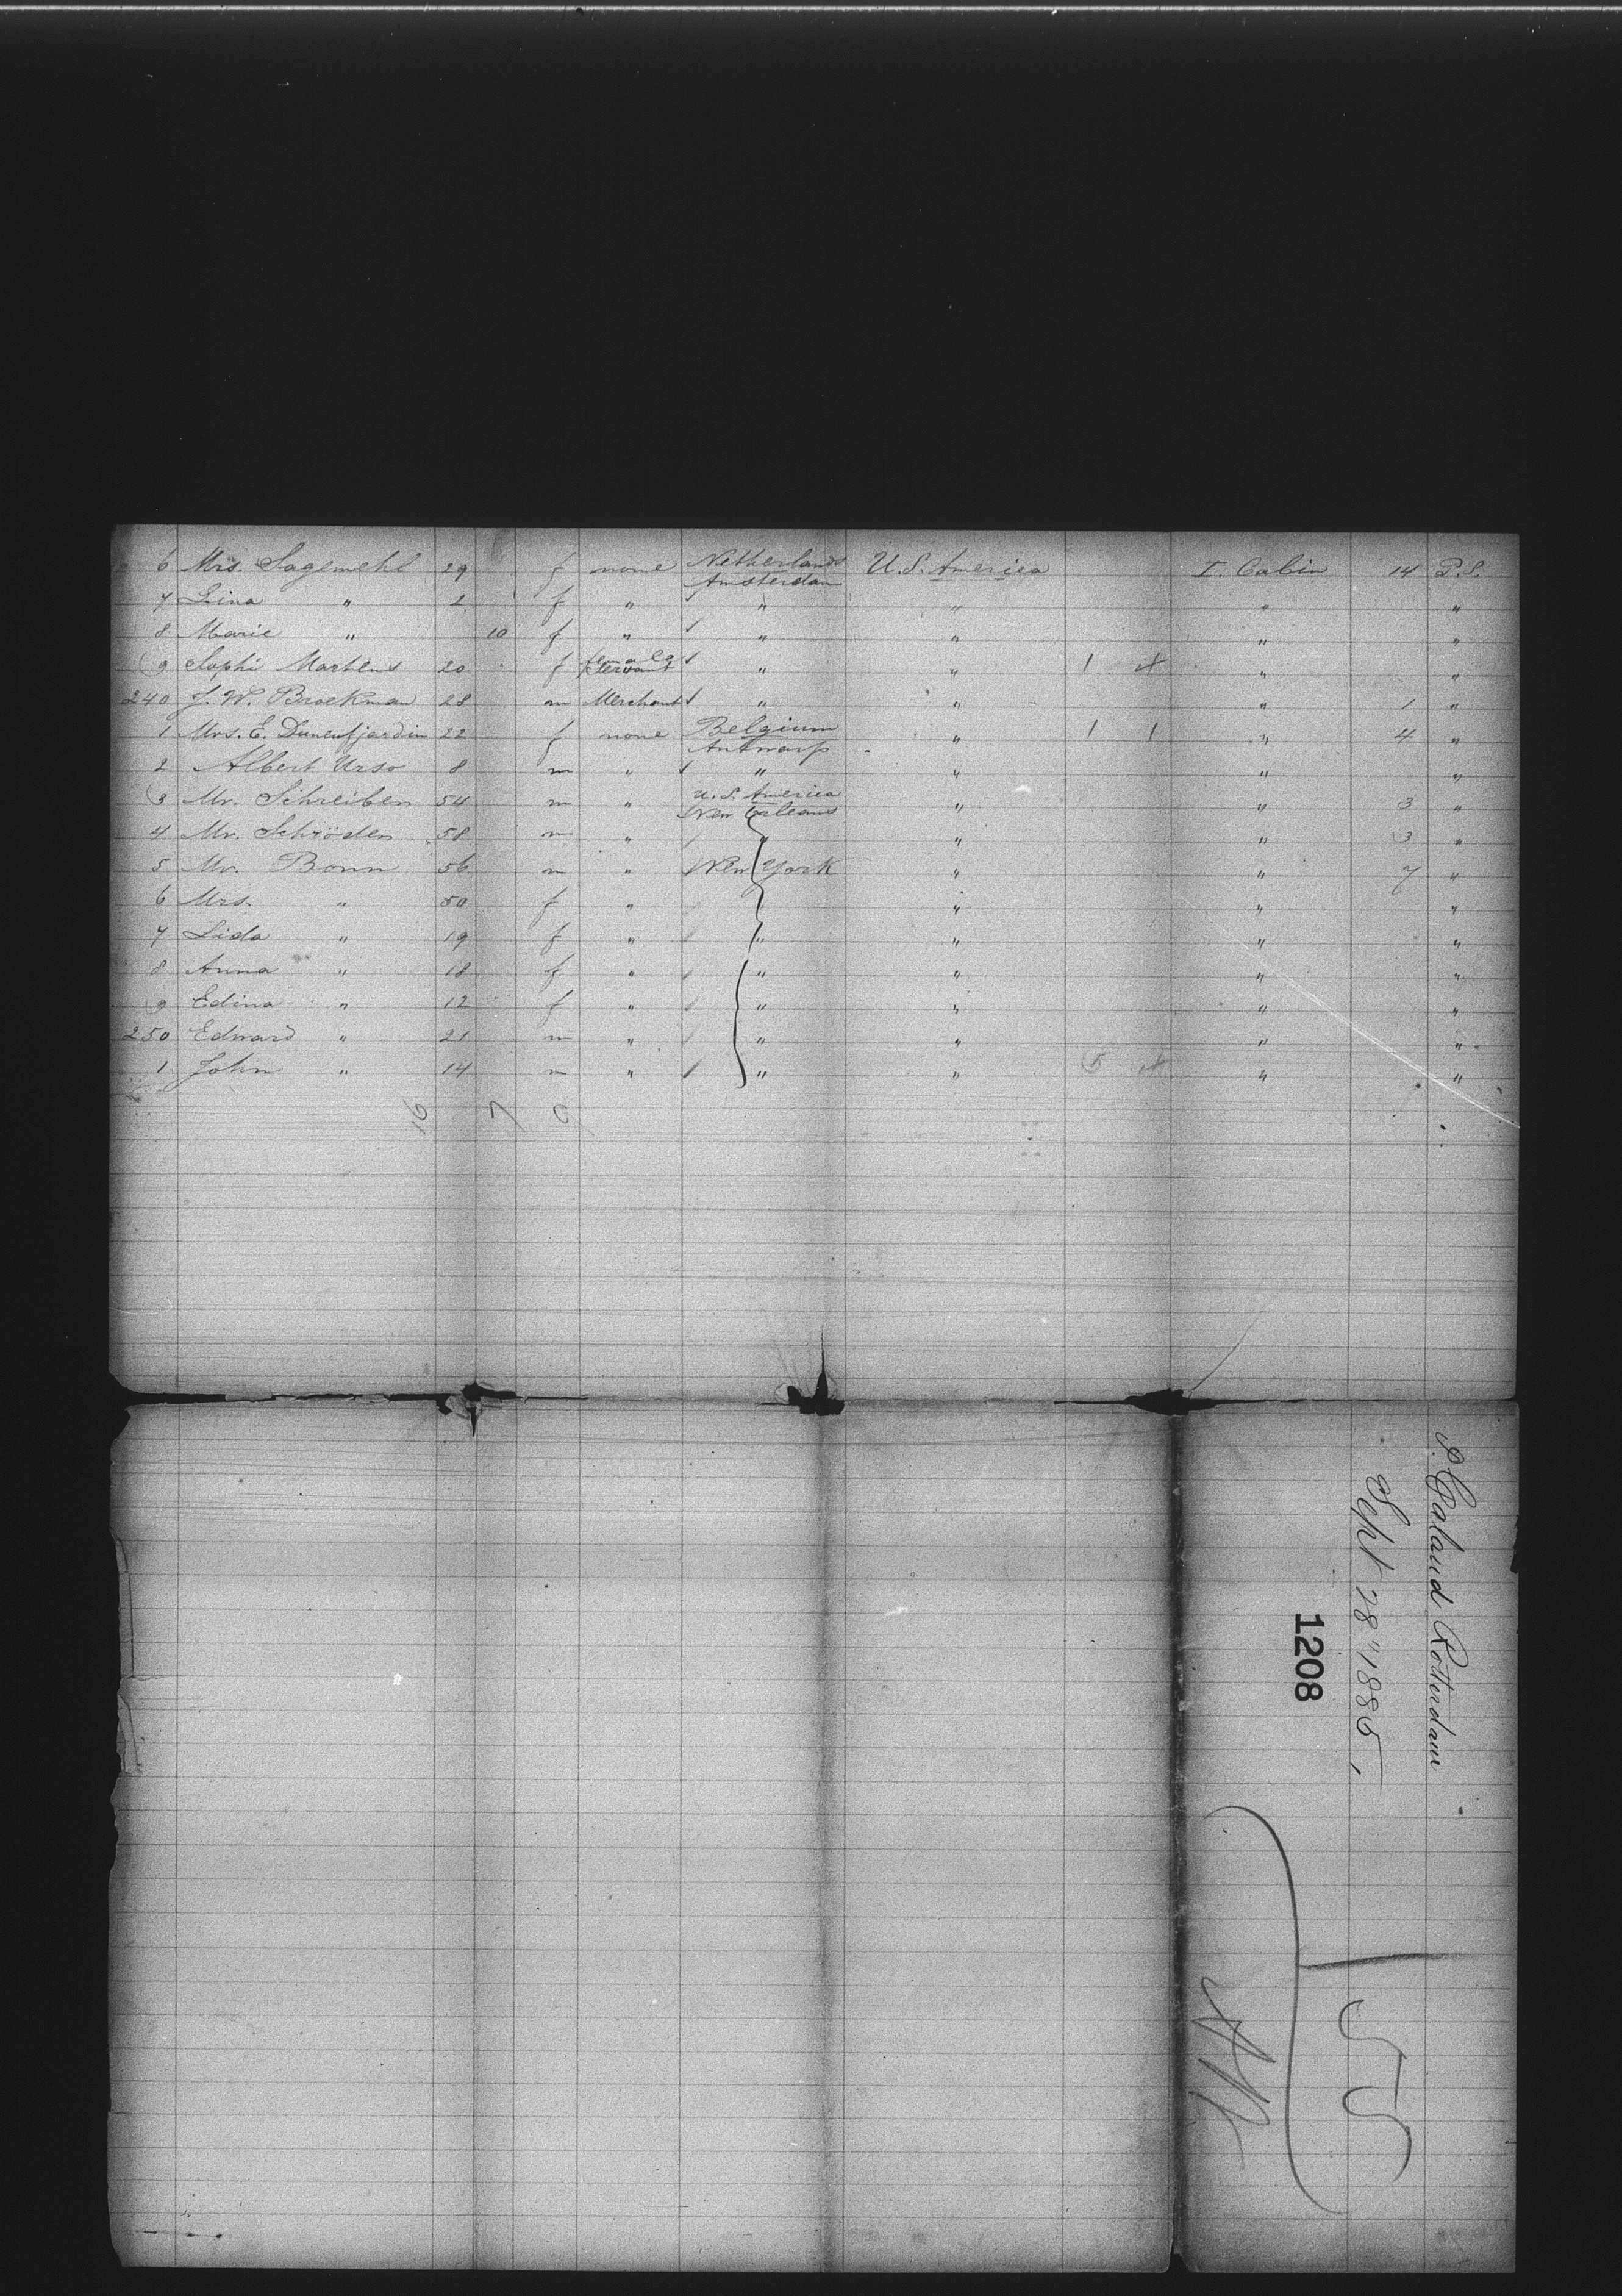 6 Mrs. Sagemehl 29 f none Netherlands Amsterdam U.S. America I. Cabin 14 P.S.
7 Lina " 2 f " " " " "
8 Marie " 10 f " " " " "
9 Sophi Martens 20 f female servant " " 1 " "
240 J. W. Broekman 28 m Merchant " " " 1 "
1 Mrs. E. 22 f none Belgium Antwarp " 1 1 " 4 "
2 Albert Urso 8 m " " " " "
3 Mr. Schreiben 54 m " U.S. America New Orleans " " 3 "
4 Mr. Schröden 58 m " " " " 3 "
5 Mr. Bonn 56 m " New York " " 7 "
6 Mrs. " 50 f " " " " "
7 Lida " 19 f " " " " "
8 Anna " 18 f " " " " "
9 Edina " 12 f " " " " "
250 Edward " 21 m " " " " "
1 John " 14 m " " " 5 " "
16 7 9
P. Caland Rotterdam
Sept 28" 1885,
1208